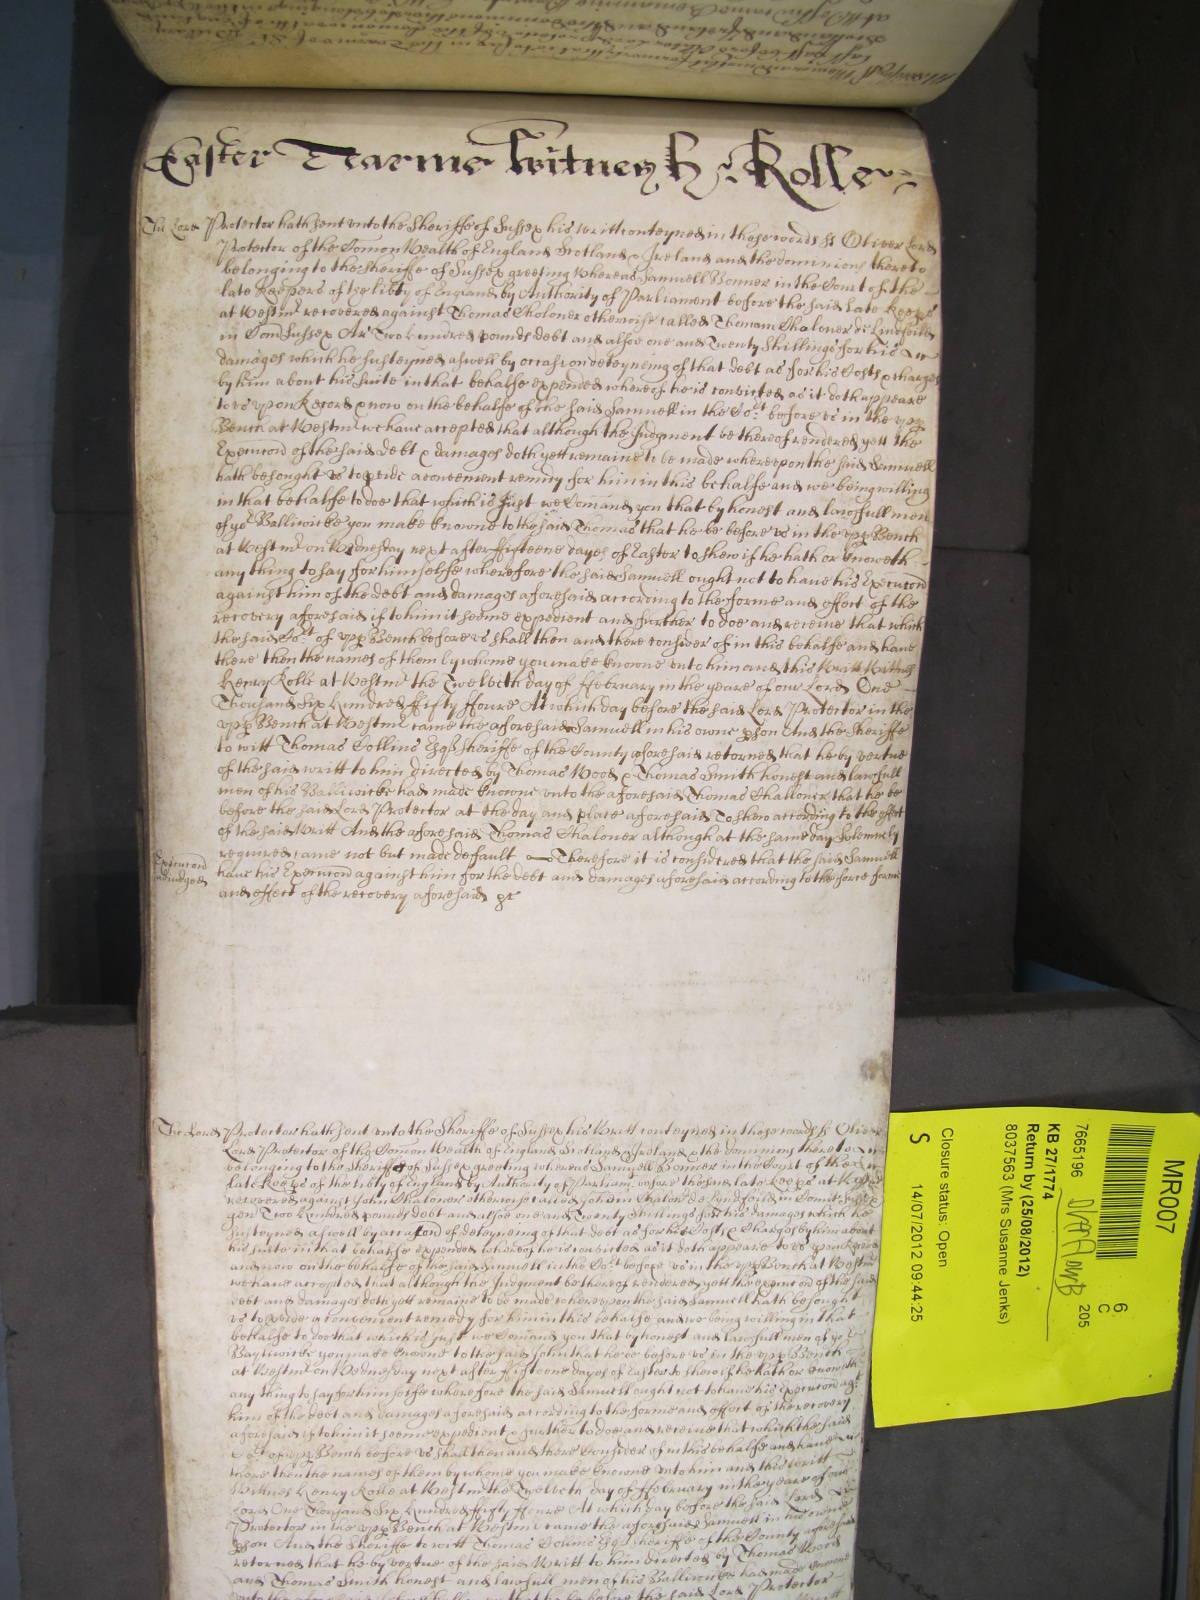 Easter Tearme Witnes H: Rolle
The Lord Protector hath sent unto the Sheriffe of Sussex his writt conteyned in these words ss Oliver Lord
Protector of the Comon Wealth of England Scotland & Ireland and the dominions thereto
belonging to the Sheriffe of Sussex greeting Whereas Samuell Bonner in the Court of the
late Keepers of the libty of England by Authority of Parliament before the said late Keeps
at Westmr recovered against Thomas Chaloner otherwise called Thomam Chaloner de Lindfeild
in Com Sussex Ar Two hundred pounds debt and alsoe one and Twenty Shillings for his
damages which he susteyned aswell by occasion deteyneing of that debt as for his Costs & charges
by him about his suite in that behalfe expended whereof he is convicted as it doth appeare
to us upon Record & now on the behalfe of the said Samuell in the Cort before us in the upp
Bench at Westmr we have accepted that although the Judgment be thereof rendered yett the
Execucon of the said debt & damages doth yett remaine to be made whereupon the said Samuell
hath besought us to pvide a convenient remidy for him in this behalfe and we being willing
in that behalfe to doe that which is Just we Comand you that by honest and lawfull men
of yor Balliwicke you make knowne to the said Thomas that he be before us in the upp Bench
at Westmr on Wednesday next after fifteene dayes of Easter to shew if he hath or knoweth
any thing to say for himselfe wherefore the said Samuell ought not to have his Execucon
against him of the debt and damages aforesaid according to the forme and effect of the
recovery aforesaid if to him it seeme expedient and further to doe and receive that which
the said Cort of upp Bench before us shall then and there consider of in this behalfe and have
there then the names of them by whome you make knowne unto him and this Writt Wittnes
Henry Rolle at Westmr the Twelveth day of ffebruary in the yeare of our Lord One
Thousand Six hundred ffifty ffoure At which day before the said Lord Protector in the
upp Bench at Westmr came the aforesaid Samuell in his owne pson And the Sheriffe
to witt Thomas Collins Esqr Sheriffe of the County aforesaid returned that he by vertue
of the said writt to him directed by Thomas Wood & Thomas Smith honest and lawfull
men of his Balliwicke had made knowne unto the aforesaid Thomas Challoner that he be
before the said Lord Protector at the day and place aforesaid To shew according to the effect
of the said Writt And the aforesaid Thomas Chaloner although at the same day Solemnely
required came not but made default Therefore it is considered that the said Samuell
Execucon
adiudged
have his Execucon against him for the debt and damages aforesaid according to the force forme
and effect of the recovery aforesaid &c
The Lord Protector hath sent unto the Sheriffe of Sussex his Writt conteyned in these words ss Oliver
Lord Protector of the Comon Wealth of England Scotland Ireland & the dominions thereto
belonging to the Sheriffe of Sussex greeting whereas Samuell Bonner in the Court of the
late Keeps of the libty of England by Authority of Parliam before the said late Keeps at
recovered against John Chaloner otherwise called John Chaloner de Lyndfeild in Comit Sussex
gen Two hundred pounds debt and alsoe one and Twenty Shillings for his damages which he
susteyned aswell by occasion of deteyneing of that debt as for his Costs & Charges by him about
his suite in that behalfe expended whereof he is convicted as it doth appeare to us upon Record
and now on the behalfe of the said Samuell in the Cort before us in the upp Bench at Westmr
we have accepted that although the Judgment be thereof rendered yett the execucon of the said
debt and damages doth yett remaine to be made whereupon the said Samuell hath besought
us to pvide a convenient remedy for him in this behalfe and we being willing in that
behalfe to doe that which is just we Comand you that by honest and lawfull men of yor
Baylywicke you make knowne to the said John that he be before us in the upp Bench
at Westmr on Wednesday next after fifteene dayes of Easter to shew if he hath or knoweth
any thing to say for himselfe wherefore the said Samuell ought not to have his Execucon agt
him of the debt and damages aforesaid according to the forme and effect of the recovery
aforesaid if to him it seeme expedient & further to doe and receive that which the said
Cort of upp Bench before us shall then and there Consider of in this behalfe and have
there then the names of them by whome you make knowne unto him and this writt
Witnes Henry Rolle at Westmr the Twelveth day of ffebruary in the yeare of our
Lord One Thousand Six hundred ffifty ffoure At which day before the said Lord
Protector in the upp Bench at Westmr came the aforesaid Samuell in his owne
pson And the Sheriffe to witt Thomas Collins Esqr Sheriffe of the County aforesaid
returned that he by vertue of the said Writt to him directed by Thomas Wood
and Thomas Smith honest and lawfull men of his Balliwicke had made knowne
he be before the said Lord Protector
MR007
6
C
7665196
205
KB 27/1774
Return by (25/08/2012)
8037563 (Mrs Susanne Jenks)
Closure status: Open
S 14/07/2012 09:44:25